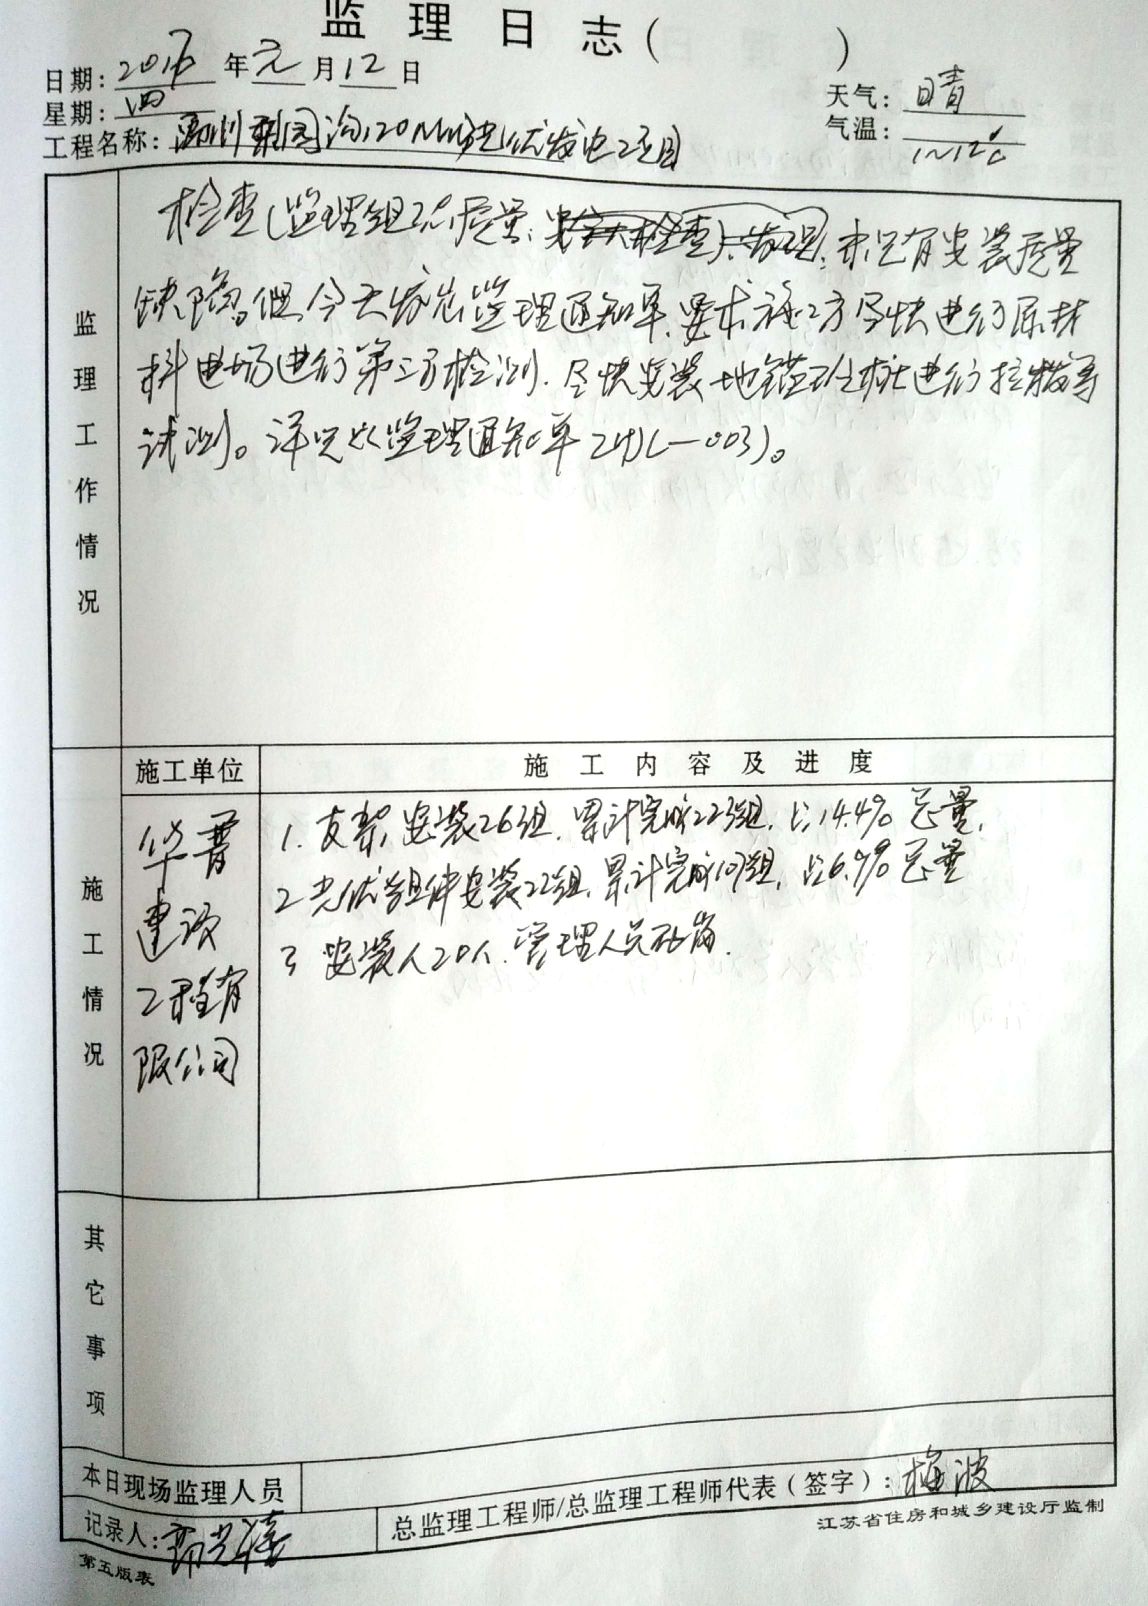 监 理 日 志 ( )
日期: 年 元 月 12 日
星期: 四
天气: 晴
气温: 1~12℃
工程名称: 120MW 发电工程项目
监理工作情况
检查 监理 质量 检查 未见有安装质量
缺陷,但今天发出监理通知单,要求施工方尽快进行原材
料进场进行第三方检测.尽快安装地锚 桩进行拉拔等
试测。详见 监理通知单 —003)。
施工单位
施 工 内 容 及 进 度
施工情况
华普
建设
工程有
限公司
1. 支架安装26组,累计完成223组,占14.4%总量,
2 光伏组件安装22组,累计完成107组,占6.9%总量
3 安装人20人.管理人员在岗.
其它事项
本日现场监理人员
总监理工程师/总监理工程师代表(签字): 梅波
记录人:
江苏省住房和城乡建设厅监制
第五版表